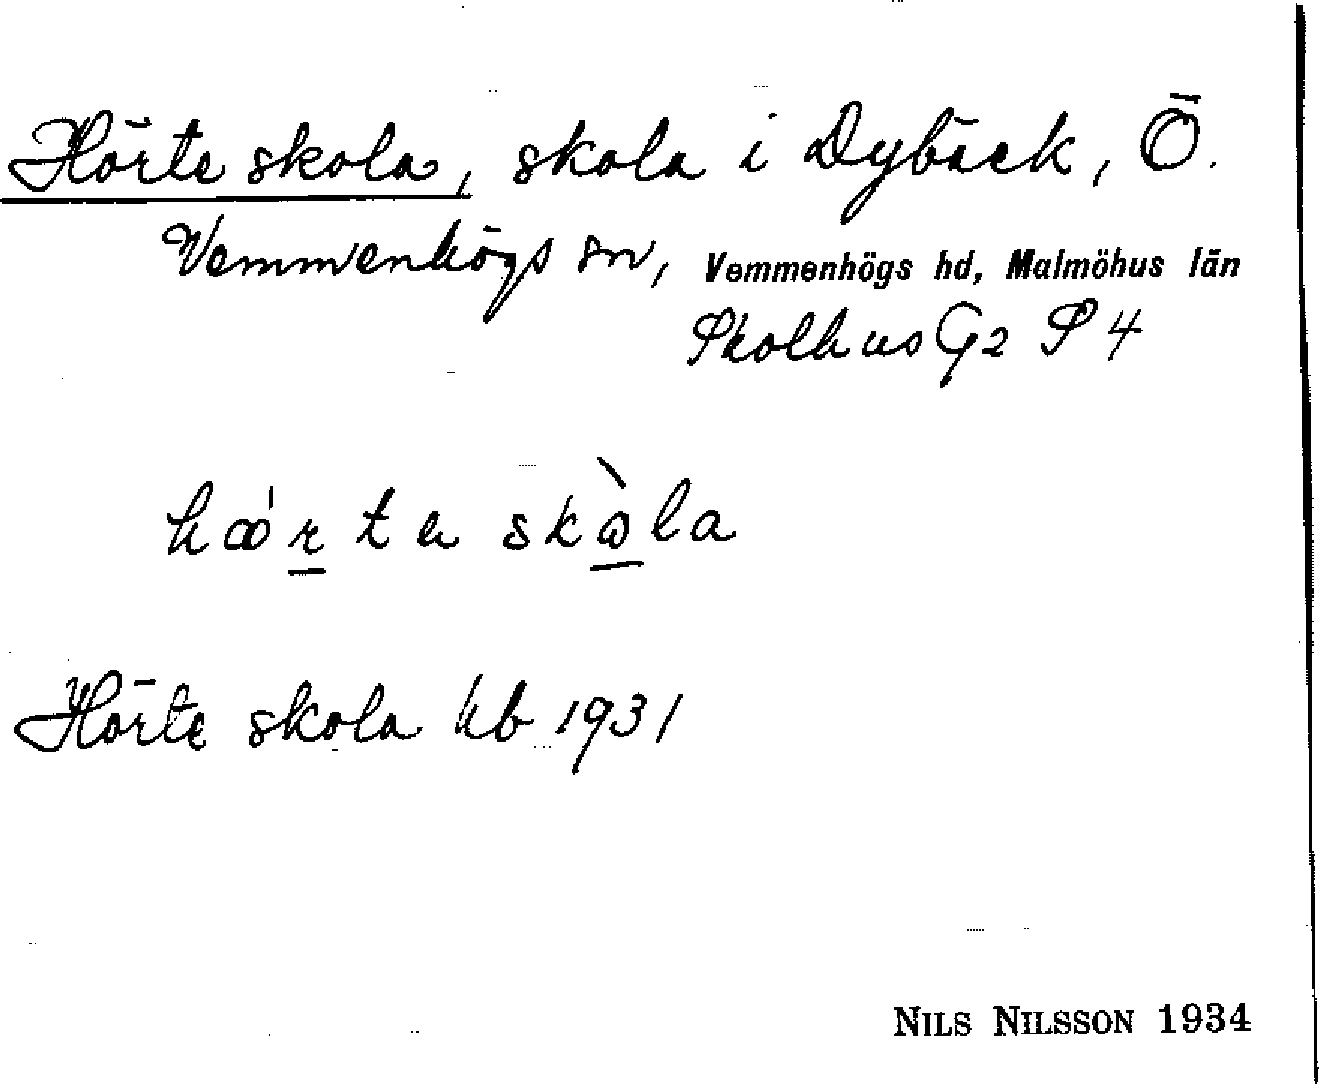 Hörte skola, skola i Dybäck, Ö.
Vemmenhögs sn, Vemmenhögs hd, Malmöhus län
Skolhus G2 S 4
hœ́r̲ta skò̲la
Hörte skola kb 1931
NILS NILSSON 1934